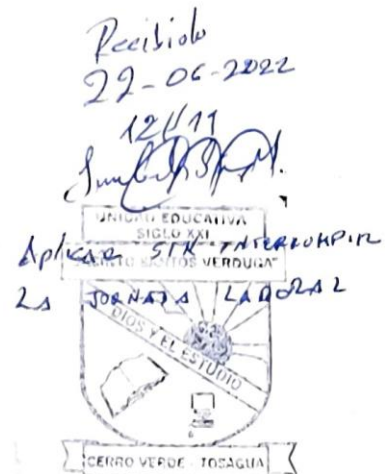 Recibido
22-06-2022
12H11
UNIDAD EDUCATIVA
SIGLO XXI
Aplicar SIN INTERRUMPIR
SANTOS VERDUGA"
LA JORNADA LABORAL
DIOS Y EL ESTUDIO
CERRO VERDE - TOSAGUA